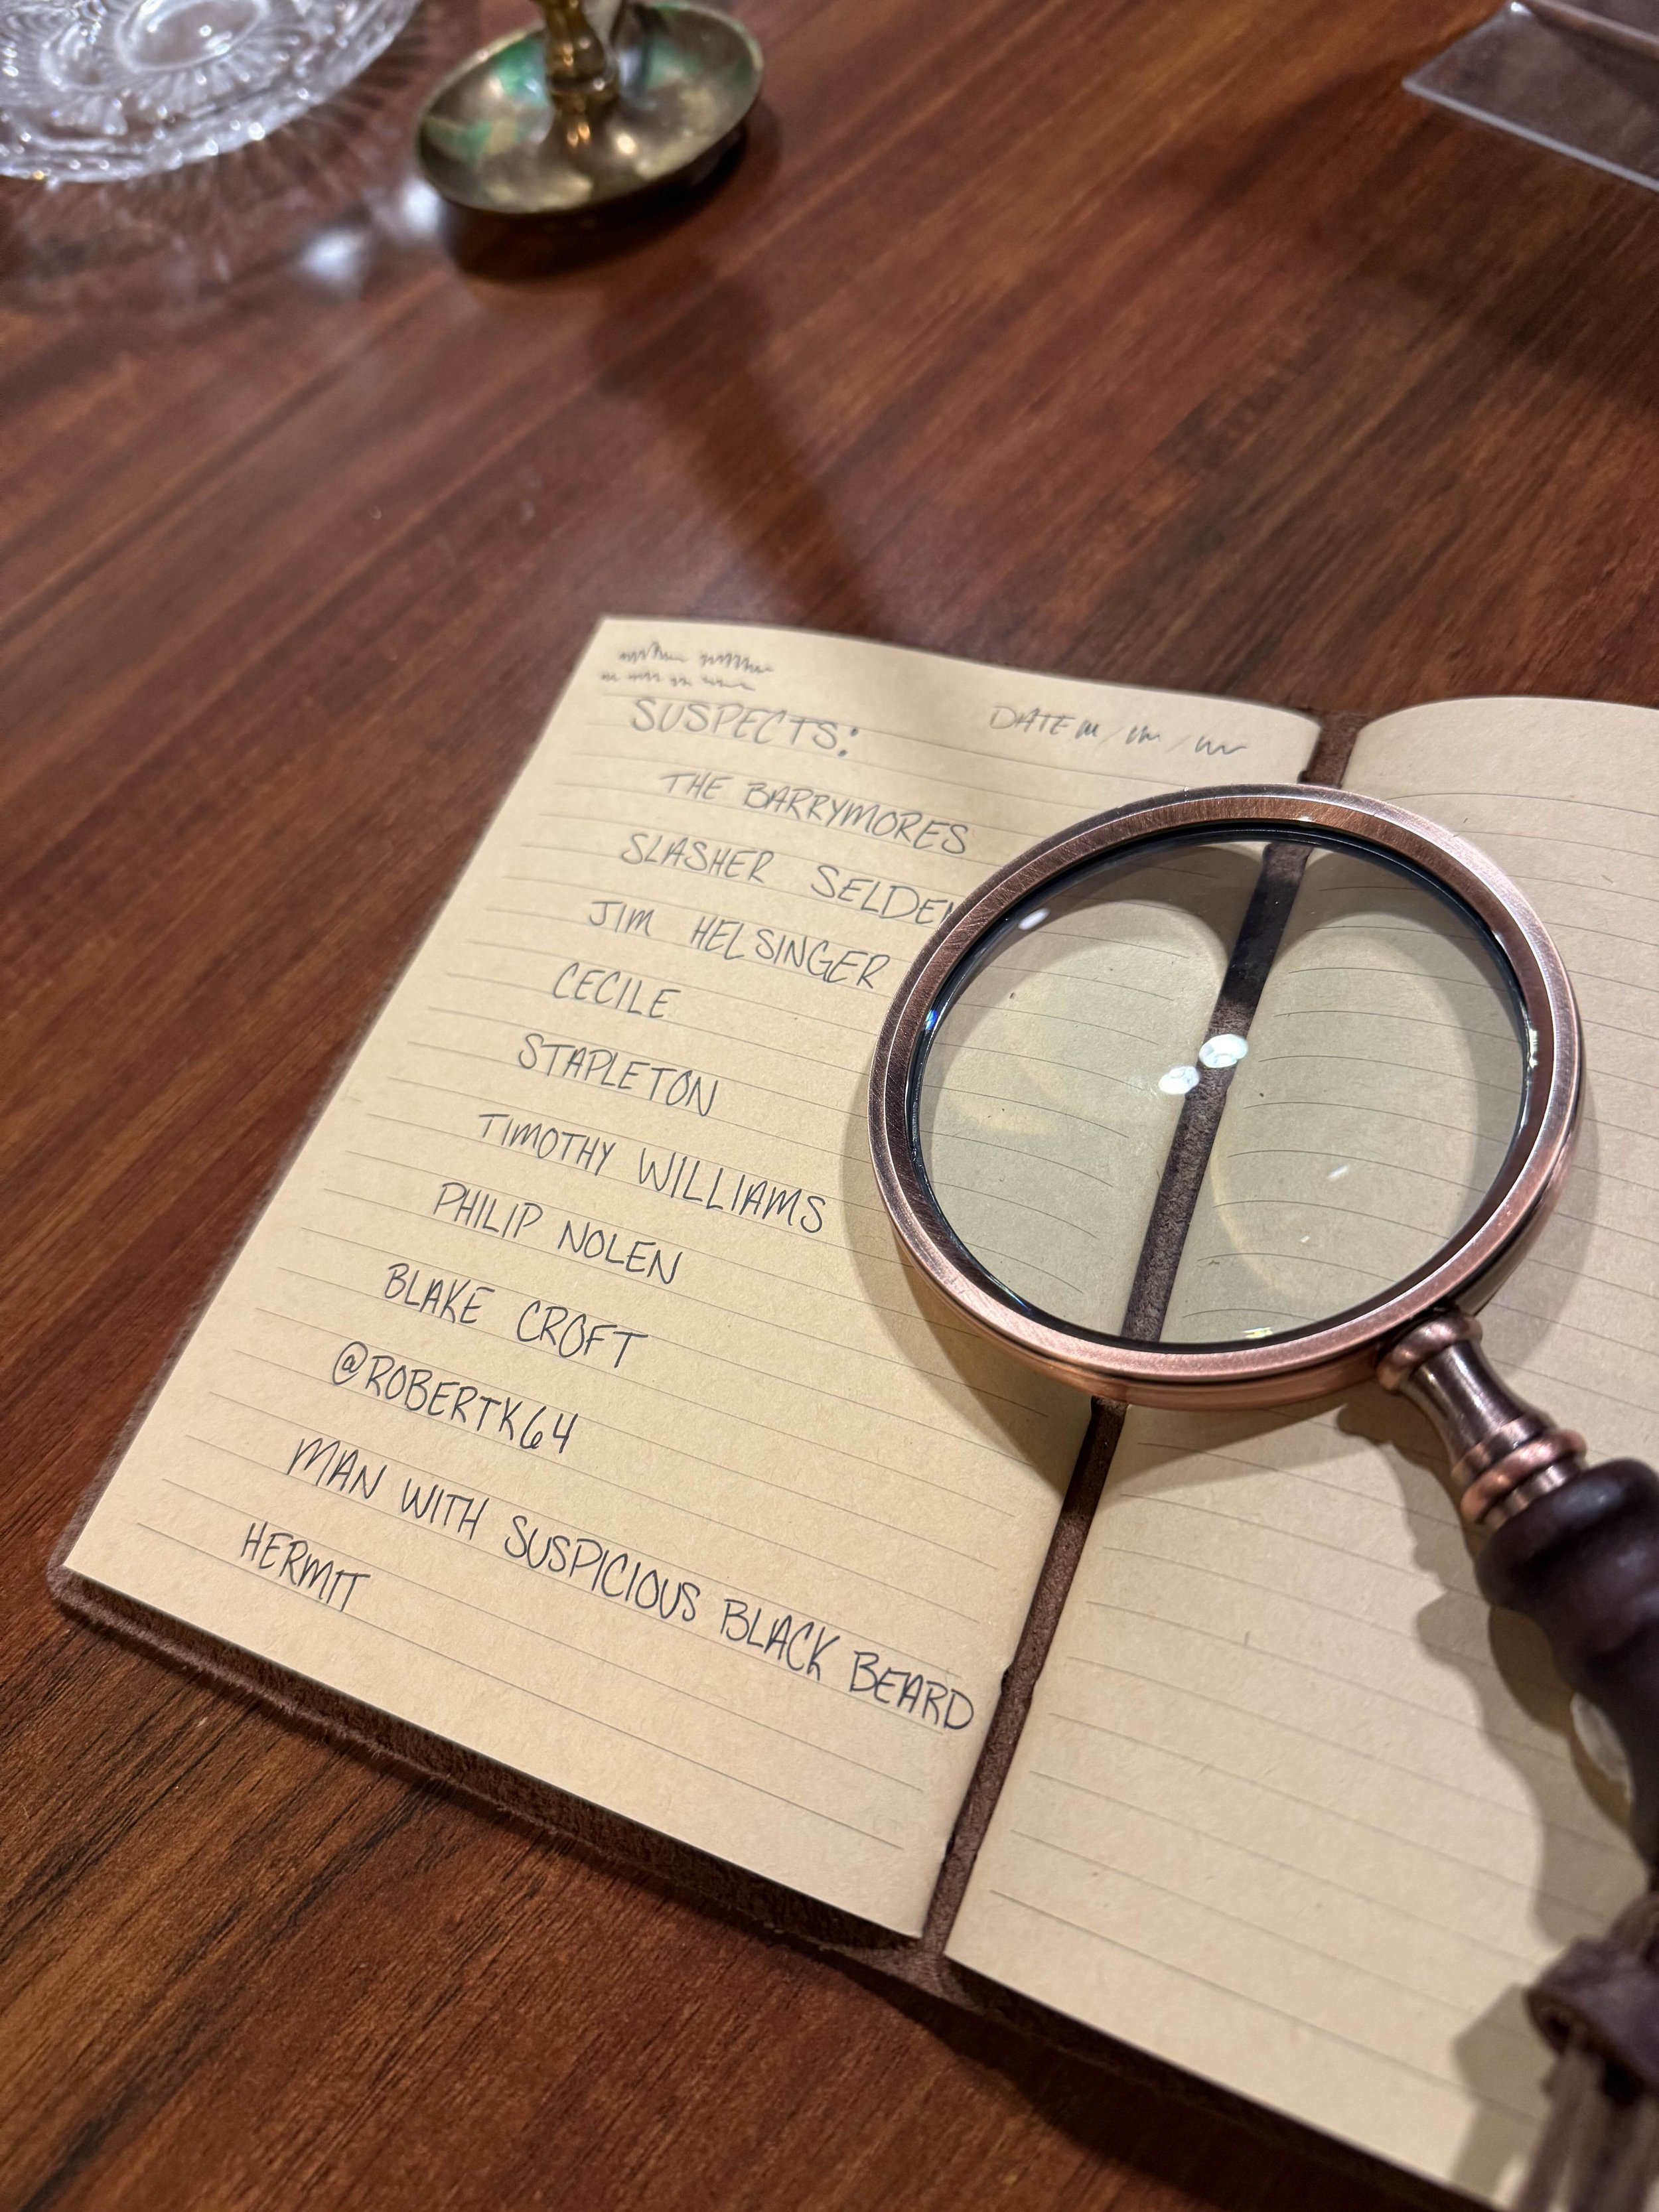 SUSPECTS:
DATE
THE BARRYMORES
SLASHER SELDEN
JIM HELSINGER
CECILE
STAPLETON
TIMOTHY WILLIAMS
PHILIP NOLEN
BLAKE CROFT
@ROBERTK64
MAN WITH SUSPICIOUS BLACK BEARD
HERMIT